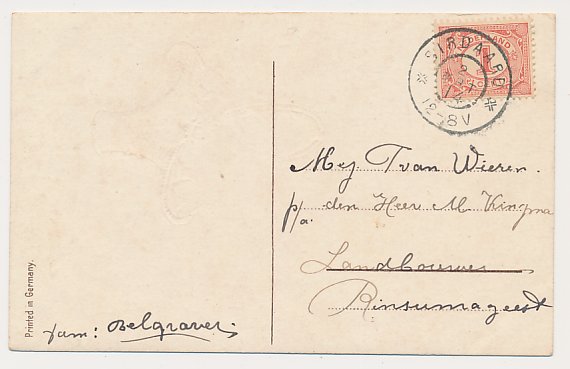 NEDERLAND
SIRDAARD
12-8V
Mej T van Wieren.
p/a. den Heer M. Kingma
Landbouwer
Rinsumageest
fam: Belgraver
Printed in Germany.